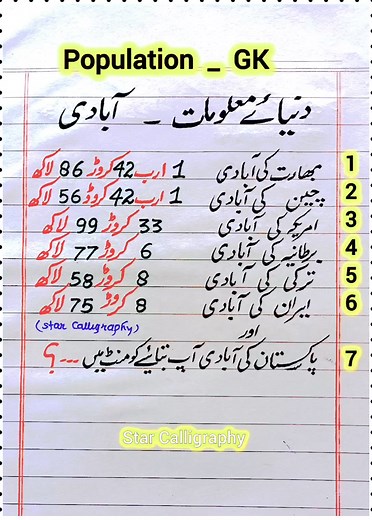 Population _ GK
دنیائے معلومات - آبادی
1 بھارت کی آبادی 1 ارب 42 کروڑ 86 لاکھ
2 چین کی آبادی 1 ارب 42 کروڑ 56 لاکھ
3 امریکہ کی آبادی 33 کروڑ 99 لاکھ
4 برطانیہ کی آبادی 6 کروڑ 77 لاکھ
5 ترکی کی آبادی 8 کروڑ 58 لاکھ
6 ایران کی آبادی 8 کروڑ 75 لاکھ
(Star Calligraphy)
اور
7 پاکستان کی آبادی آپ بتائیے کومنٹ میں ...؟
Star Calligraphy